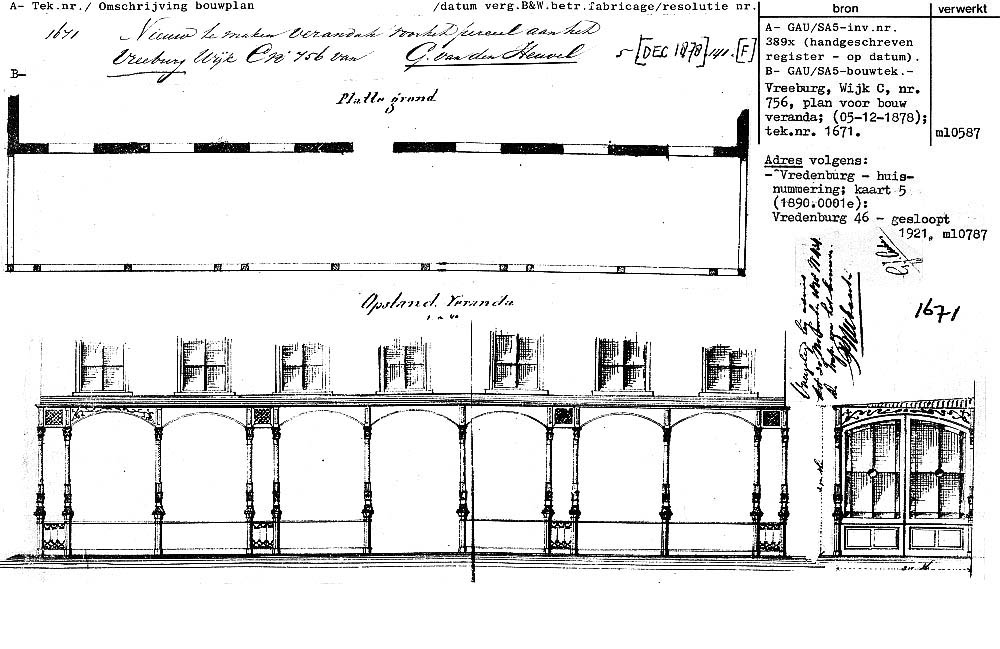 A- Tek.nr./ Omschrijving bouwplan /datum verg.B&W.betr.fabricage/resolutie nr.
bron verwerkt
1671 Nieuw te maken verandah voor het perceel aan het
Vreeburg Wijk C no 756 van G. van den Heuvel 5-[DEC 1878] [F]
B-
A- GAU/SA5-inv.nr.
389x (handgeschreven
register - op datum).
B- GAU/SA5-bouwtek.-
Vreeburg, Wijk C, nr.
756, plan voor bouw
veranda; (05-12-1878);
tek.nr. 1671. m10587
Adres volgens:
-^Vredenburg - huis-
nummering; kaart 5
(1890.0001e):
Vredenburg 46 - gesloopt
1921, m10787
Platte grond
Opstand Veranda
1671